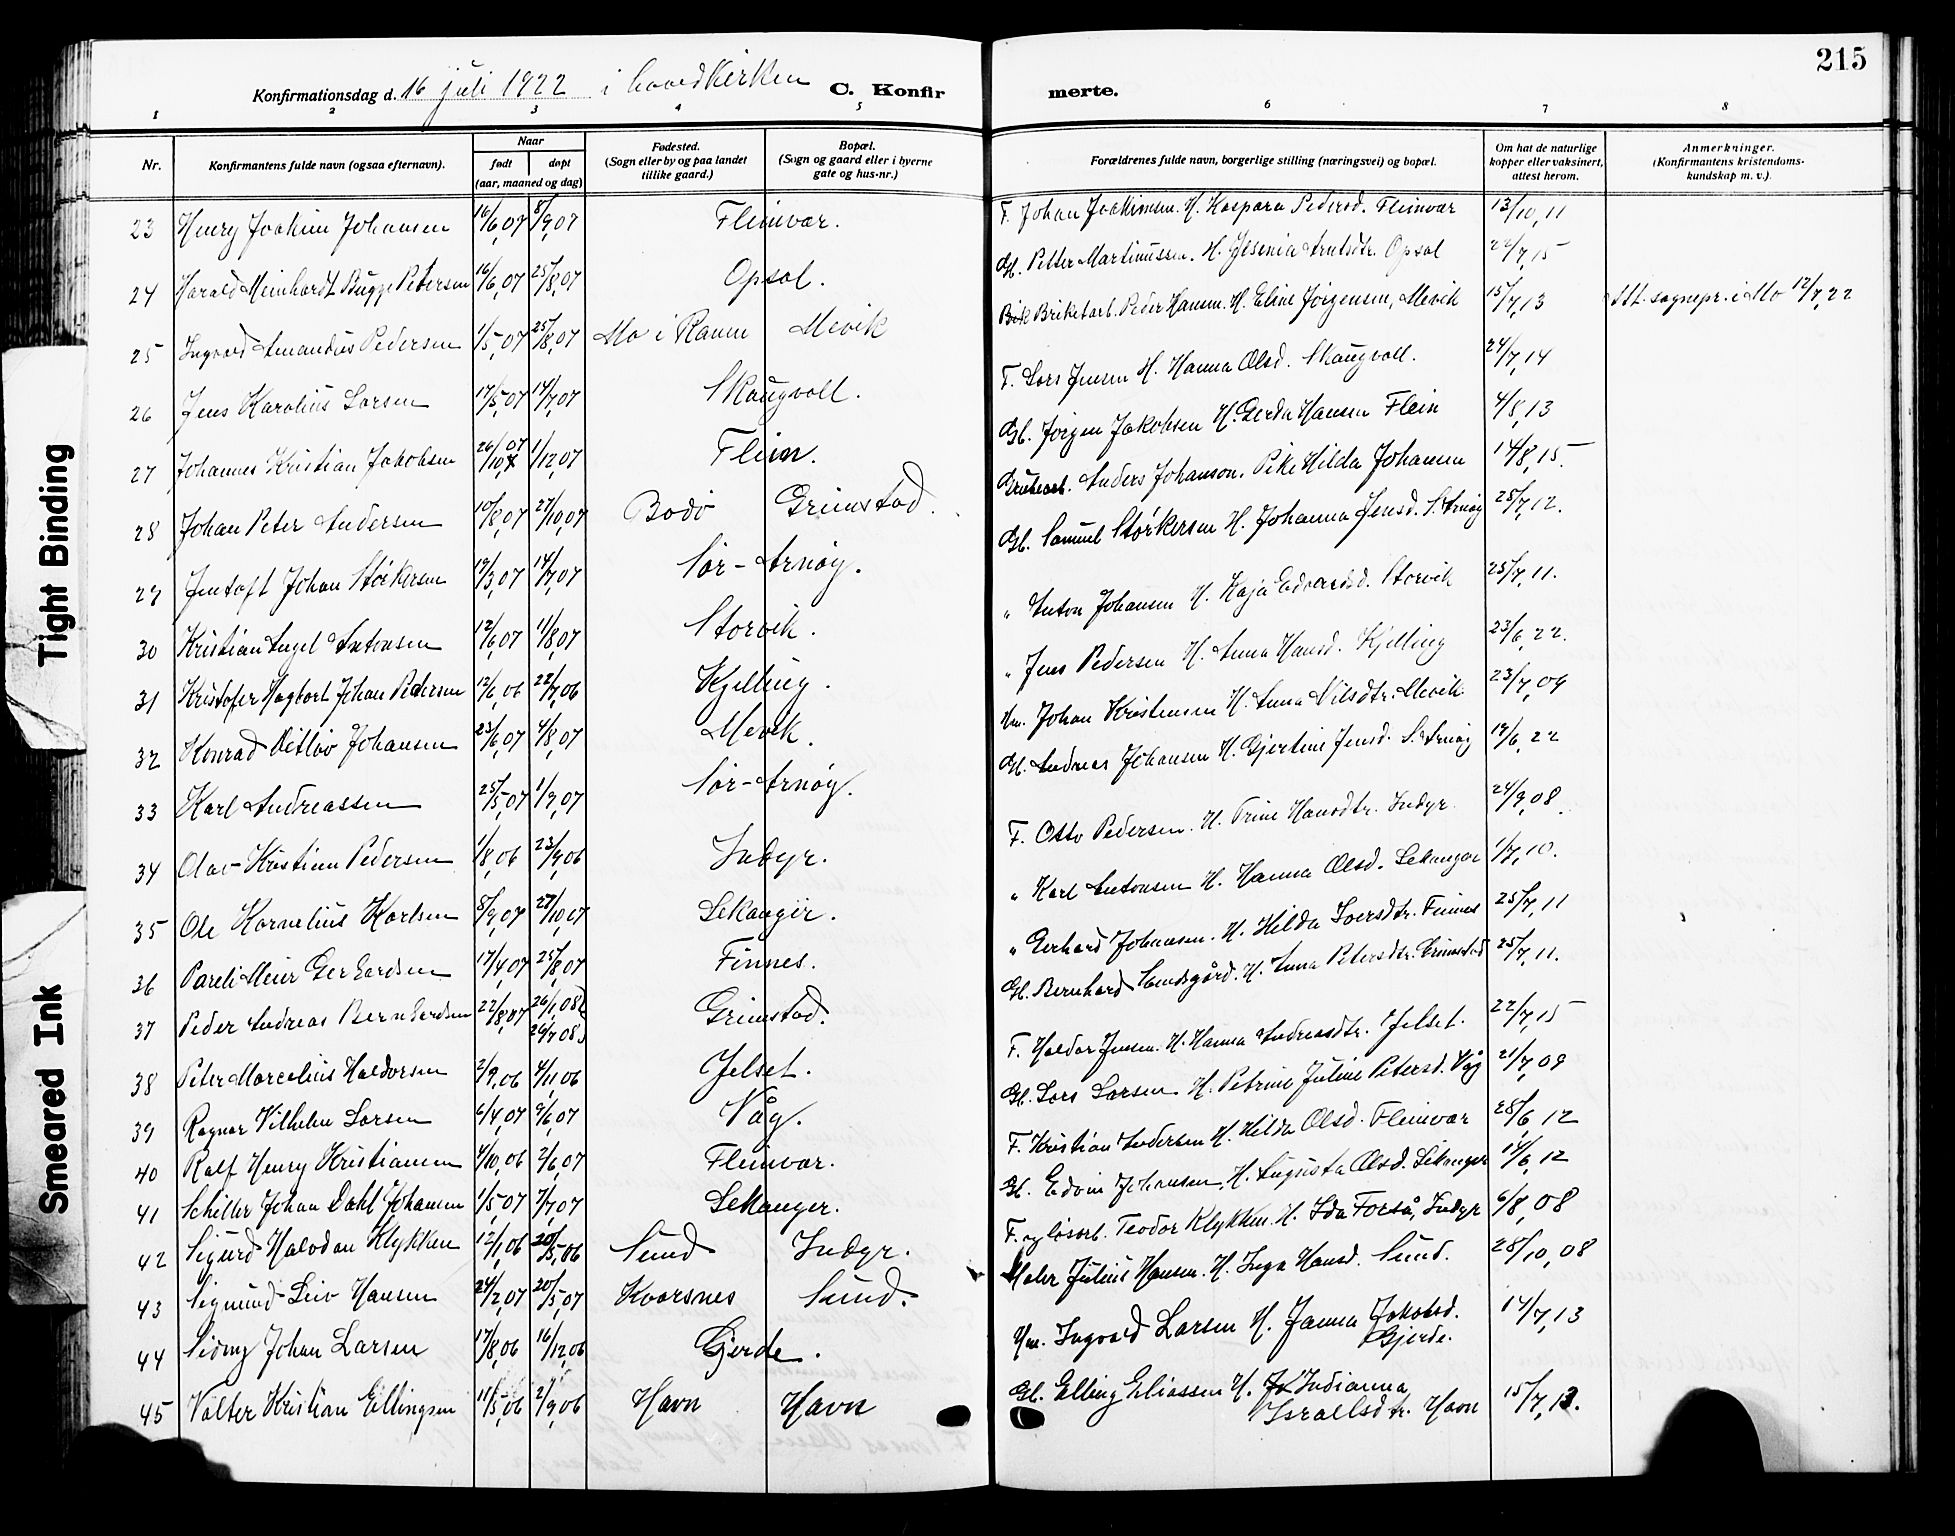 215
Konfirmationsdag d. 16 juli 1922 i hovedkirken C. Konfirmerte.
1 2 3 4 5 6 7 8
Nr. Konfirmantens fulde navn (ogsaa efternavn). Naar født døpt (aar, maaned og dag) Fødested. (Sogn eller by og paa landet tillike gaard.) Bopæl. (Sogn og gaard eller i byerne gate og hus-nr.) Forældrenes fulde navn, borgerlige stilling (næringsvei) og bopæl. Om hat de naturlige kopper eller vaksinert, attest herom. Anmerkninger. (Konfirmantens kristendomskundskap m. v.).
23 Henry Joakim Johansen 16/6,07 8/9,07 Fleinvær. F. Johan Joakimsen. H. Kaspara Pedersd. Fleinvær 13/10,11
24 Harald Meinhardt Bugge Petersen 16/6,07 25/8,07 Opsal. Gb. Petter Martinussen. H. Arntsdtr. Opsal 22/7,15
25 Ingvard Amandus Pedersen 1/5,07 25/8,07 Mo i Ranen Mevik Briketarb. Peder Hansen. H. Eline Jörgensen, Mevik 15/7,13 Att. sognepr. i Mo 12/7,22
26 Jens Karolius Larsen 17/5,07 14/7,07 Skaugvoll. F. Lars Jensen H. Hanna Olsd. Skaugvoll. 24/7,14
27 Johannes Kristian Jakobsen 26/10,07 1/12,07 Flein. Gb. Jörgen Jakobsen H. Gerda Hansen Flein 4/8,13
28 Johan Peter Andersen 10/8,07 27/10,07 Bodö Grimstad. Grubearb. Anders Johanson. Pike Hilda Johansen 14/8,15.
29 Jentoft Johan Störkersen 17/3,07 14/7,07 Sör-Arnöy. Gb. Samuel Störkersen H. Johanna Jensd. S. Arnöy 25/7,12.
30 Kristian Angel Antonsen 12/6,07 11/8,07 Storvik. " Anton Johansen H. Kaja Edvardsd. Storvik 25/7,11.
31 Kristofer Hagbart Johan Pedersen 12/6,06 22/7,06 Kjelling. " Jens Pedersen H. Anna Hansd. Kjelling 23/6,22.
32 Konrad Ditlöv Johansen 23/6,07 4/8,07 Mevik. Hm. Johan Kristensen H. Anna Nilsdtr. Mevik 23/7,09
33 Karl Andreassen 25/5,07 1/9,07 Sör-Arnöy. Gb. Andreas Johansen H. Gjertine Jensd. S. Arnöy 19/6,22
34 Olav Kristian Pedersen 1/8,06 23/9,06 Indyr. F. Otto Pedersen. H. Trine Hansdtr. Indyr 24/9,08.
35 Ole Kornelius Karlsen 8/9,07 27/10,07 Sekanger. " Karl Antonsen H. Hanna Olsd. Sekanger 1/7,10.
36 Pareli Meier Gerhardsen 17/4,07 25/8,07 Finnes. " Gerhard Johansen. H. Hilda Iversdtr. Finnes 25/7,11
37 Peder Andreas Bernhardsen 22/8,07 26/1,08 26/7,08 Grimstad. Gb. Bernhard Sandsgård. H. Anna Petersdtr. Grimstad 25/7,11.
38 Peter Marcelius Haldorsen 2/9,06 4/11,06 Jelset. F. Haldor Jensen. H. Hanna Andreasdtr. Jelset. 22/7,15
39 Ragnar Vilhelm Larsen 6/4,07 9/6,07 Våg. Gb. Lars Larsen H. Petrine Juline Petersd. Våg 21/7,09
40 Ralf Henry Kristiansen 4/10,06 2/6,07 Fleinvær. F. Kristian Andersen H. Hilda Olsd. Fleinvær 28/6,12
41 Schiller Johan Dahl Johansen 1/5,07 7/7,07 Sekanger. Gb. Edvin Johansen, H. Augusta Olsd. Sekanger 14/6,12
42 Sigurd Halvdan Klykken 12/1,06 20/5,06 Sund Indyr. F. og lösarb. Teodor Klykken. H. Ida Forså, Indyr 6/8,08
43 Sigmund Leiv Hansen 24/2,07 20/5,07 Kvarsnes Sund. Maler Julius Hansen. H. Inga Hansd. Sund. 28/10,08
44 Sidny Johan Larsen 17/8,06 16/12,06 Gjerde. Hm. Ingvald Larsen H. Janna Jakobsd. Gjerde. 14/7,13
45 Valter Kristian Ellingsen 11/5,06 2/9,06 Havn Havn Gb. Elling Eliassen H. Indianna Israelsdtr. Havn 15/7,13.
Tight Binding
Smeared Ink